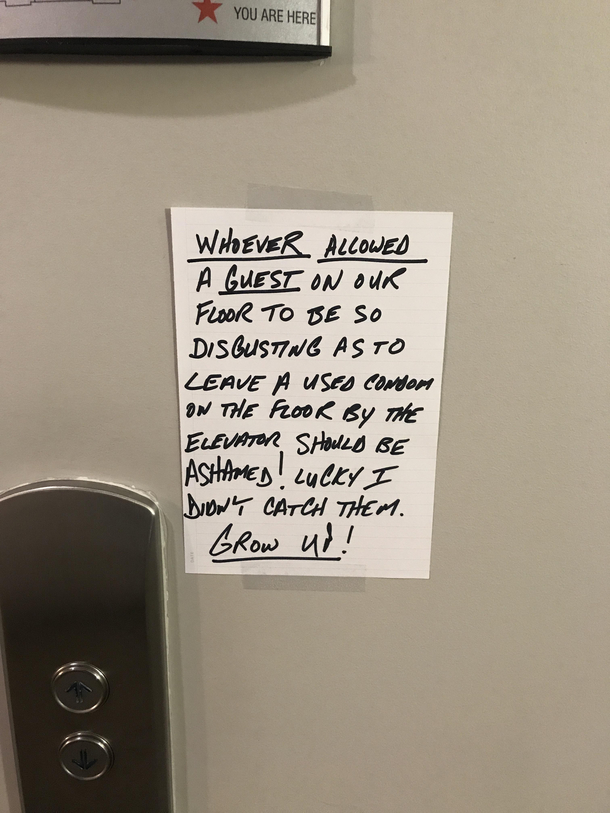 YOU ARE HERE
WHOEVER ALLOWED
A GUEST ON OUR
FLOOR TO BE SO
DISGUSTING AS TO
LEAVE A USED CONDOM
ON THE FLOOR BY THE
ELEVATOR SHOULD BE
ASHAMED! LUCKY I
DIDN'T CATCH THEM.
GROW UP!